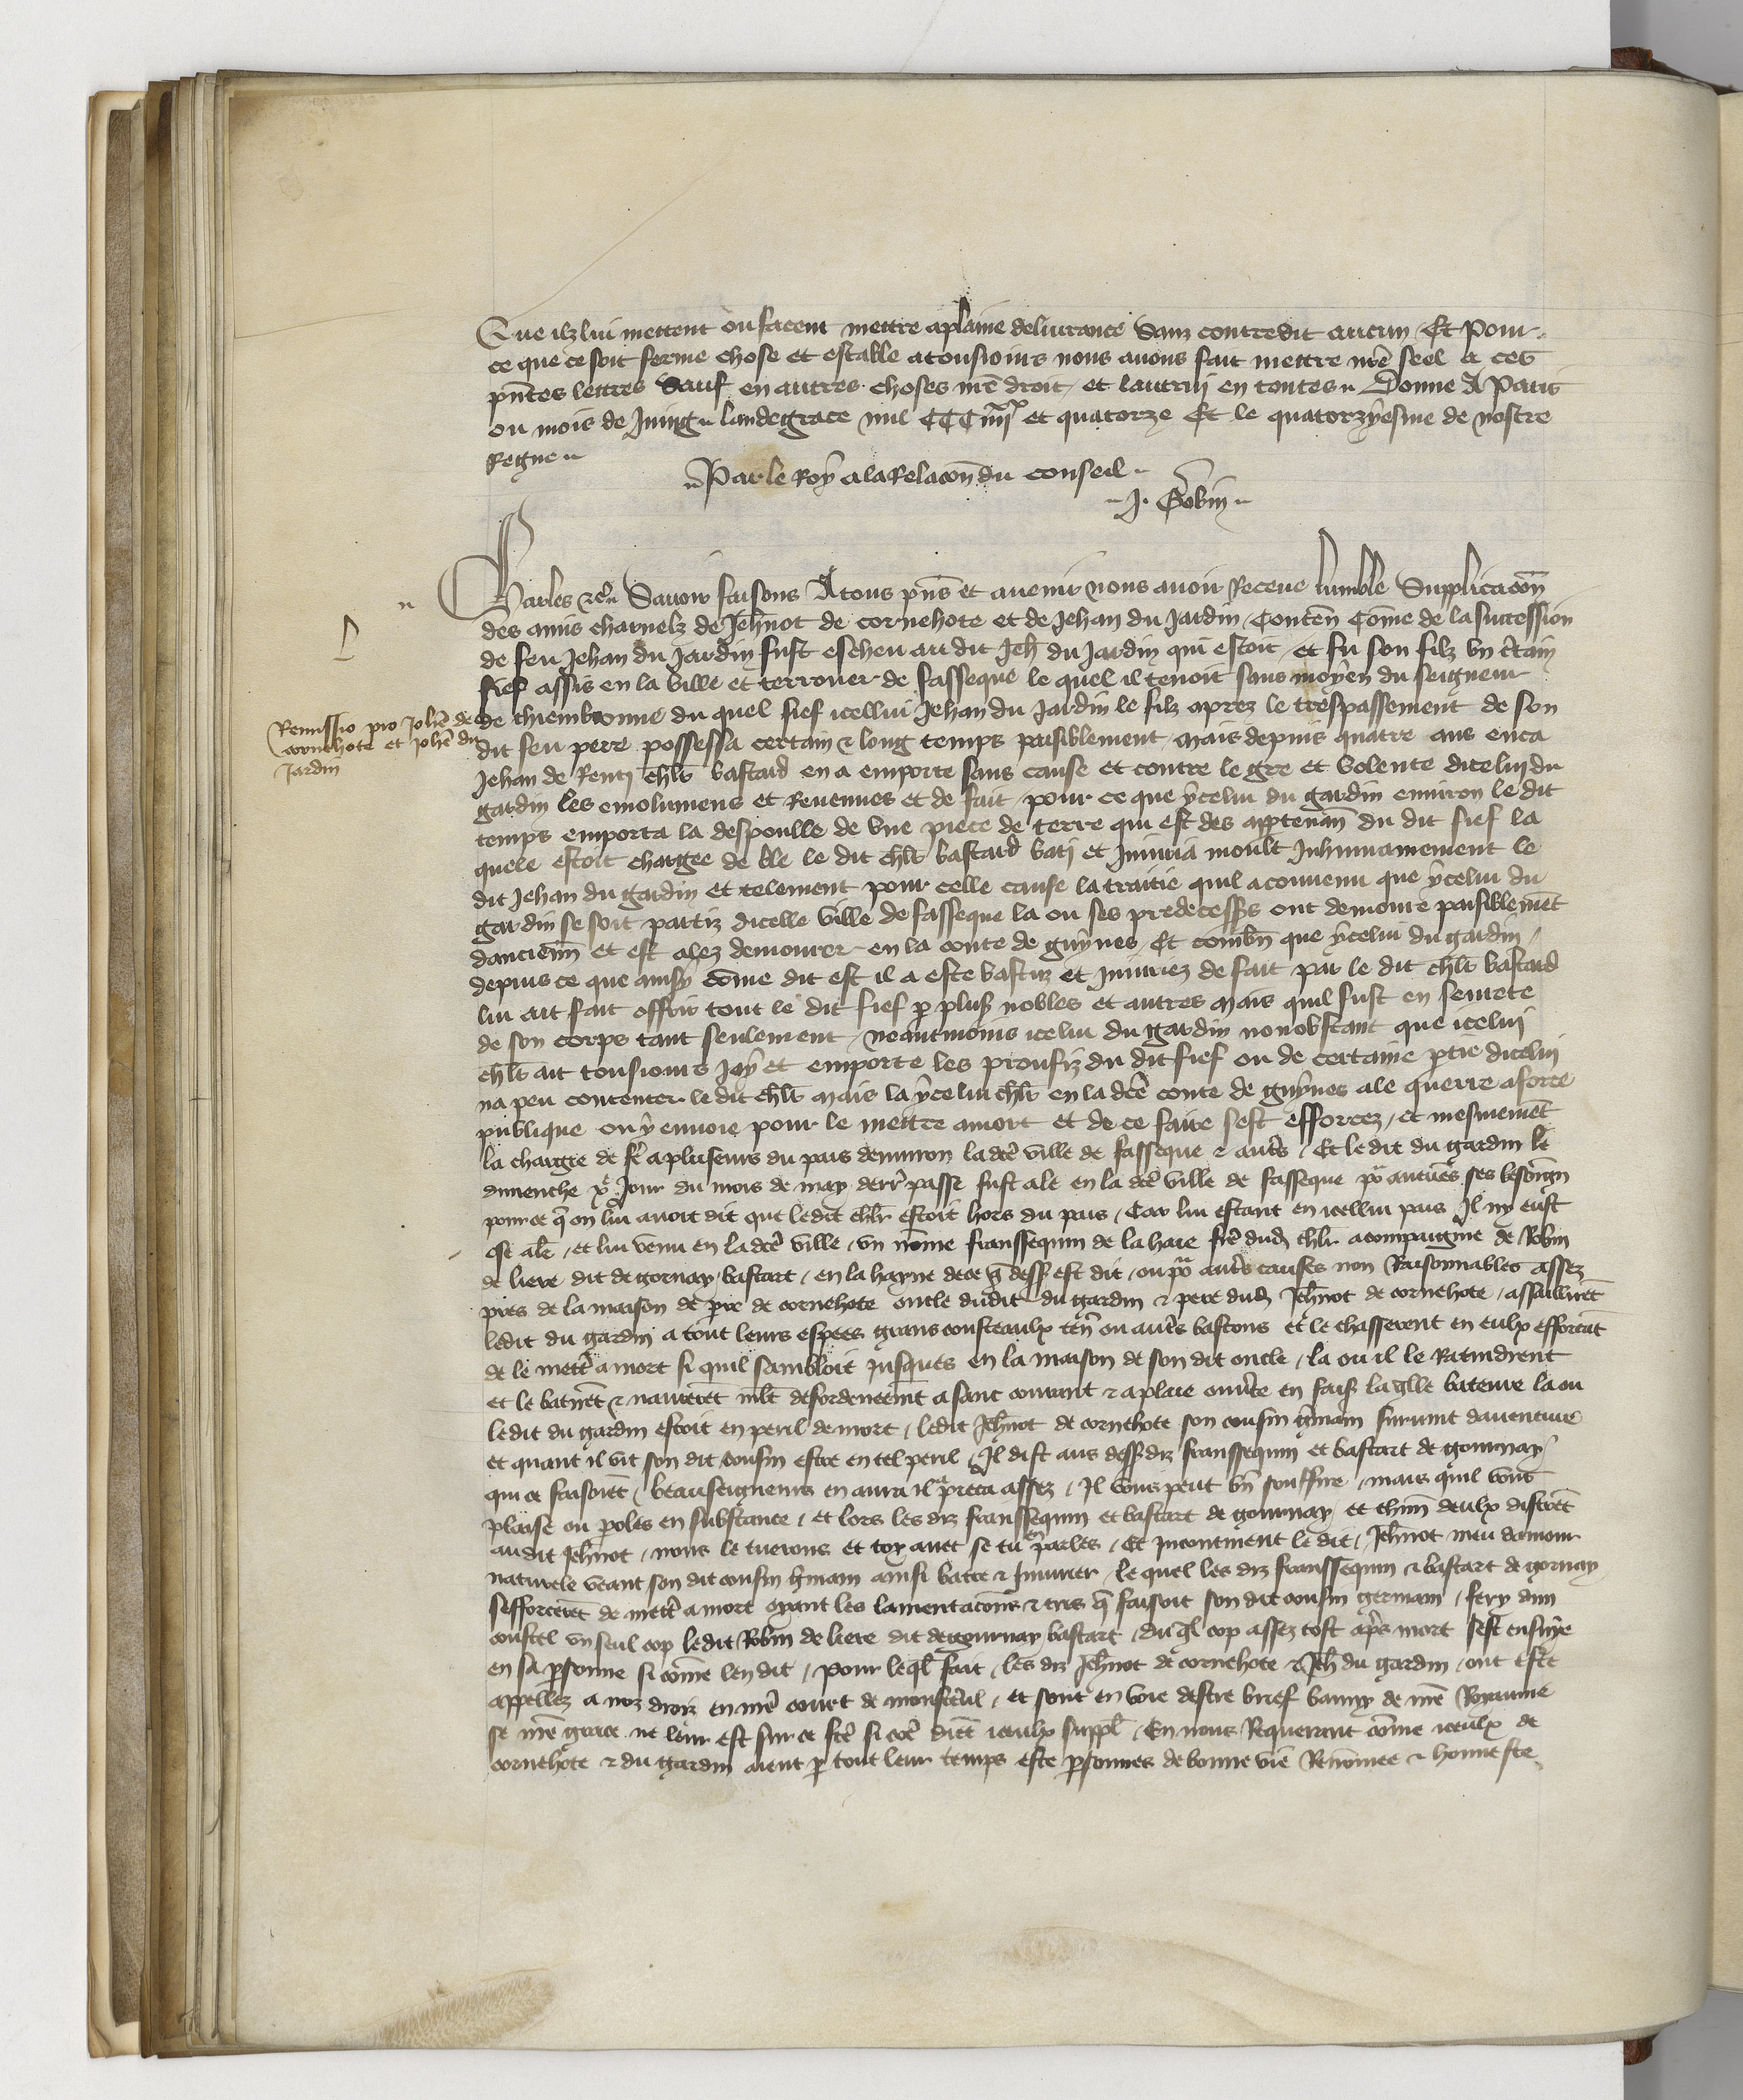 Que ilz lui mettent ou facent mettre a plaine delivrance sanz contredit aucun Et pour
ce que ce soit ferme chose et estable a tousiours nous avons fait mettre nr̃e seel a ces
pñtes lettres Sauf en autres choses nr̃e droit et lautrui en toutes Donne A Paris
ou mois de Juing lan de grace mil CCC iiiixx et quatorze Et le quatorzyesme de nostre
Regne
Par le Roy a la Relacoñ du conseil
J. Gobin
Charles &c̃ Savoir faisons A tous pñs et avenir nous avoir Receue lumble Supplicacoñ
des amis charnelz de Jeh̃not de cornehote et de Jehan du Jardin Conteñ Cõme de la succession
de feu Jehan du Jardin fust escheu au dit Jeh̃ du Jardin qui estoit et fu son filz vn c̃tain
fief assis en la ville et terrouer de fasseque le quel il tenoit sans moyen du seigneur
Remissio pro Joh̃e de
cornehote et Joh̃e du
Jardin
de thiembronne du quel fief icellui Jehan du Jardin le filz aprez le trespassement de son
dit feu pere possessa certain & long temps paisiblement mais depuis quatre ans enca
Jehan de Renty chl̃r bastard en a emporte sans cause et contre le gre et volente dicelui du
gardin les emolumens et Revenues et de fait pour ce que ycelui du gardin environ le dit
temps emporta la despoulle de vne piece de terre qui est des apptenañ du dit fief la
quele estoit chargee de ble le dit chl̃r bastard bati et Iniuria moult Inhumainement le
dit Jehan du gardin et telement pour celle cause la traitie quil a convenu que ycelui du
gardin se soit partiz dicelle ville de fasseque la ou ses predecess̃s ont demoure paisiblemẽt
danciem̃ et est alez demourer en la conte de guynes Et combñ que ycelui du gardin
depuis ce que ainsy cõme dit est il a este bastuz et Iniuriez de fait par le dit chl̃r bastard
lui ait fait offrir tout le dit fief p plus̃ nobles et autres mais quil fust en seurete
de son corps tant seulement neantmoins icelui du gardin nonobstant que icelui
chl̃r ait tousiours Joy et emporte les proufiz du dit fief ou de certaine ptie dicelui
na peu contenter le dit chl̃r mais la ycelui chl̃r en la dc̃e conte de guynes ale querre a force
publique ou y envoie pour le mettre a mort et de ce faire sest efforcez et mesmemẽt
la charge de fr̃e a pluseurs du pais denviron la dc̃e ville de fasseque & aut̃s Et le dit du gardin le
dimenche xe Jour du mois de may derr̃ passe fust ale en la dc̃e ville de fasseque po aucũes ses besoingñ
pour ce q̃ on lui avoit dit que ledit chl̃r estoit hors du pais Car lui estant en icellui pais Il ny eust
ose aler et lui venu en la dc̃e ville vn nõme franssequin de la haie fr̃e dud̃ chl̃r acompaigne de Robin
de liere dit de gornay bastart en la hayne de ce q̃ dess̃ est dit ou po aut̃s causes non Raisonnables assez
pres de la maison de pr̃e de cornehote oncle dudit du gardin & pere dud̃ Jeh̃not de cornehote assaillirẽt
ledit du gardin a tout leurs espees grans cousteaulx teñ ou aut̃s bastons et le chasserent en eulx efforcãt
de le mett̃e a mort si quil sambloit Jusques en la maison de son dit oncle la ou il le Ratindrent
et le batirẽt & navrerẽt ml̃t desordeneem̃t a sanc courant & a plaie ouv̂te en fais̃ la q̃lle bateure la ou
ledit du gardin estoit en peril de mort ledit Jeh̃not de cornehote son cousin g̃main survint daventure
et quant il vit son dit cousin estre en tel peril Il dist aus dess̃ diz franssequin et bastart de gournay
qui ce faisoiẽt beauseigneurs en aura il preca assez Il vous peut bñ souffire mais quil vous
plaise ou poles en substance et lors les diz franssequin et bastart de gournay et chũn deulx distrẽt
audit Jeh̃not nous le tuerons et toy avec se tu en parles Et Incontinent le dit Jeh̃not meu damour
naturele veant son dit cousin g̃main ainsi batre & Iniurier le quel les diz franssequin & bastart de gornay
sefforcerẽt de mett̃e a mort oyant les lamentacons & cris q̃ faisoit son dit cousin germain fery dun
coustel vn seul cop ledit Robin de liere dit de gournay bastart du q̃l cop assez tost ap̃s mort sest ensuye
en sa psonne si cõme len dit pour leq̃l fait les diz Jeh̃not de cornehote & Jeh̃ du gardin ont este
appellez a noz droiz en nr̃e court de monsterul et sont en voie destre brief banny de nr̃e Royaume
se nr̃e grace ne leur est sur ce fc̃e si cõe diẽt iceulx suppl̃ En nous Requerant cõme iceulx de
cornehote & du gardin aient p tout leur temps este psonnes de bonne vie Renõmee & honneste